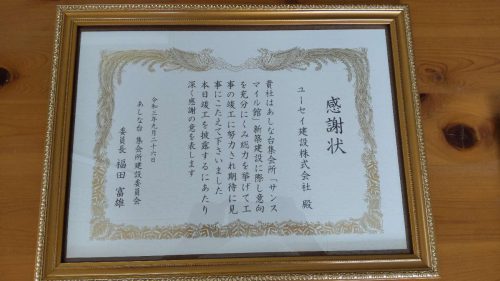 感謝状
ユーセイ建設株式会社 殿
貴社はあしな台集会所「サンス
マイル館」新築建設に際し意向
を充分にくみ総力を挙げて工
事の竣工に努力され期待に見
事にこたえて下さいました
本日竣工を披露するにあたり
深く感謝の意を表します
令和三年九月二十六日
あしな台 集会所建設委員会
委員長 福田 富雄